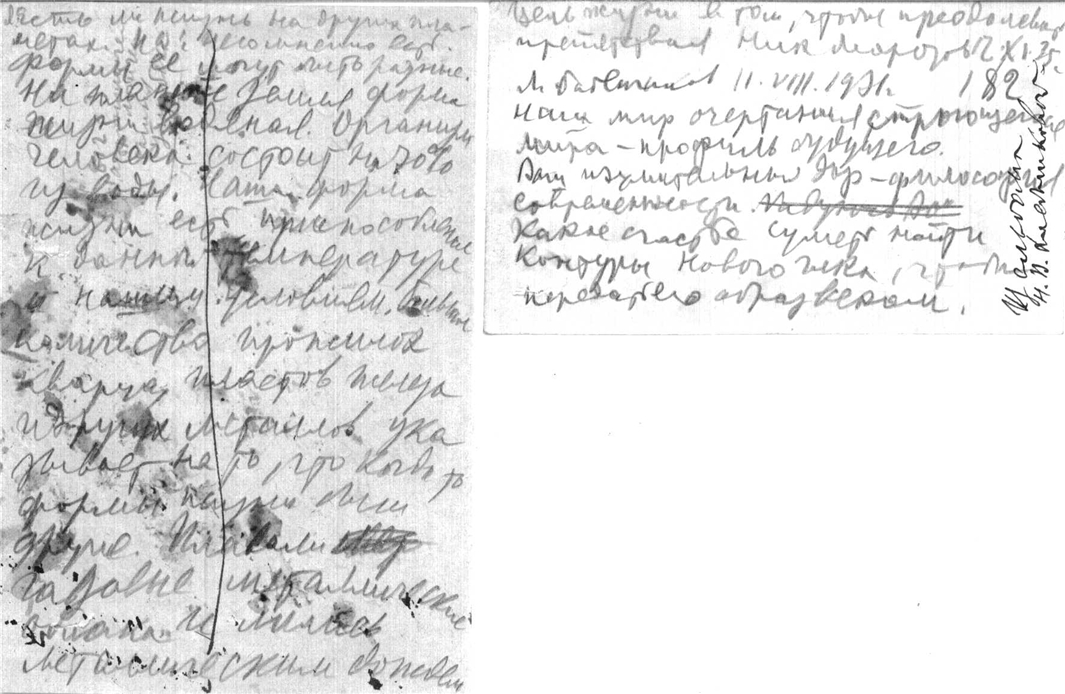 Есть ли жизнь на других пла-
нетах. Да: несомненно есть.
Формы ее могут быть разные.
На планете Земля форма
жизни водяная. Организм
человека состоит на 70%
из воды. Наша форма
жизни есть приспособление
к данной температуре
и нашим условиям. Большое
количество прожилок
кварца, пластов железа
и других металлов ука
зывает на то, что когда то
формы жизни были
другие. Плавали
газовые металлические
облака. И лились
металлическим дождем
Цель жизни в том, чтобы преодолевать
препятствия Ник Морозов 2 XI 35.
11.VIII.1931г. 182
Наш мир очертания строющегося
мира – профиль будущего.
Ваш изумительный – философия
современности.
Какое счастье суметь найти
контуры нового века, чтобы
передать его образ векам.